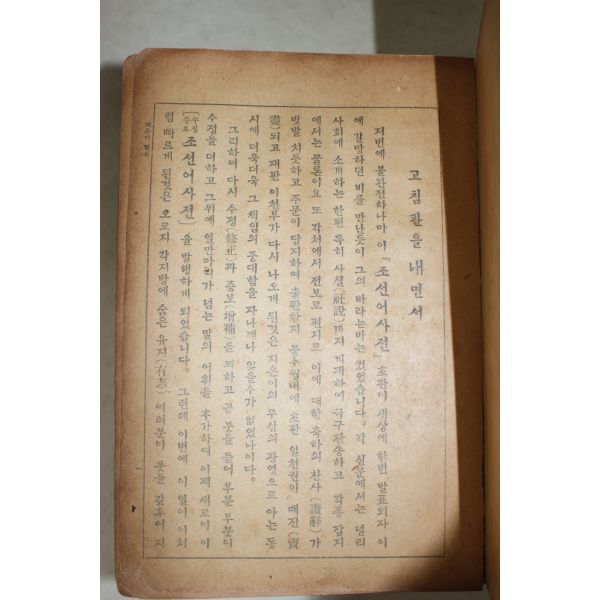 고침판을 내면서
저번에 불완전하나마 이 『조선어사전』 초판이 세상에 한번 발표되자 이
에 갈망하던 비를 만난듯이 그의 바라는바는 컸었습니다. 각 신문에서는 널리
사회에 소개하는 한편 특히 사설(社說)까지 게재하여 극구찬송하고 각종 잡지
에서는 물론이요 또 각처에서 전보로 편지로 이에 대한 축하의 찬사(讚辭)가
빗발 치듯하고 주문이 답지하여 출판한지 불수월내에 초판 일천권이 매진(賣
盡)되고 재판 이천부가 다시 나오게 된것은 지은이의 무상의 광영으로 아는 동
시에 더욱더욱 그 책임의 중대함을 자나깨나 잊을수가 없었나이다.
그리하여 다시 수정(修正)과 증보(增補)를 꾀하고 곧 붓을 들어 부분 부분이
수정을 더하고 그위에 일만마디가 넘는 말의 어휘를 추가하여 이제 새로이 이
『수정증보 조선어사전』을 발행하게 되었습니다. 그런데 이번에 이 일이 이처
럼 빠르게 된것은 오로지 각지방에 숨은 유지(有志) 여러분이 붓을 갖추어 지